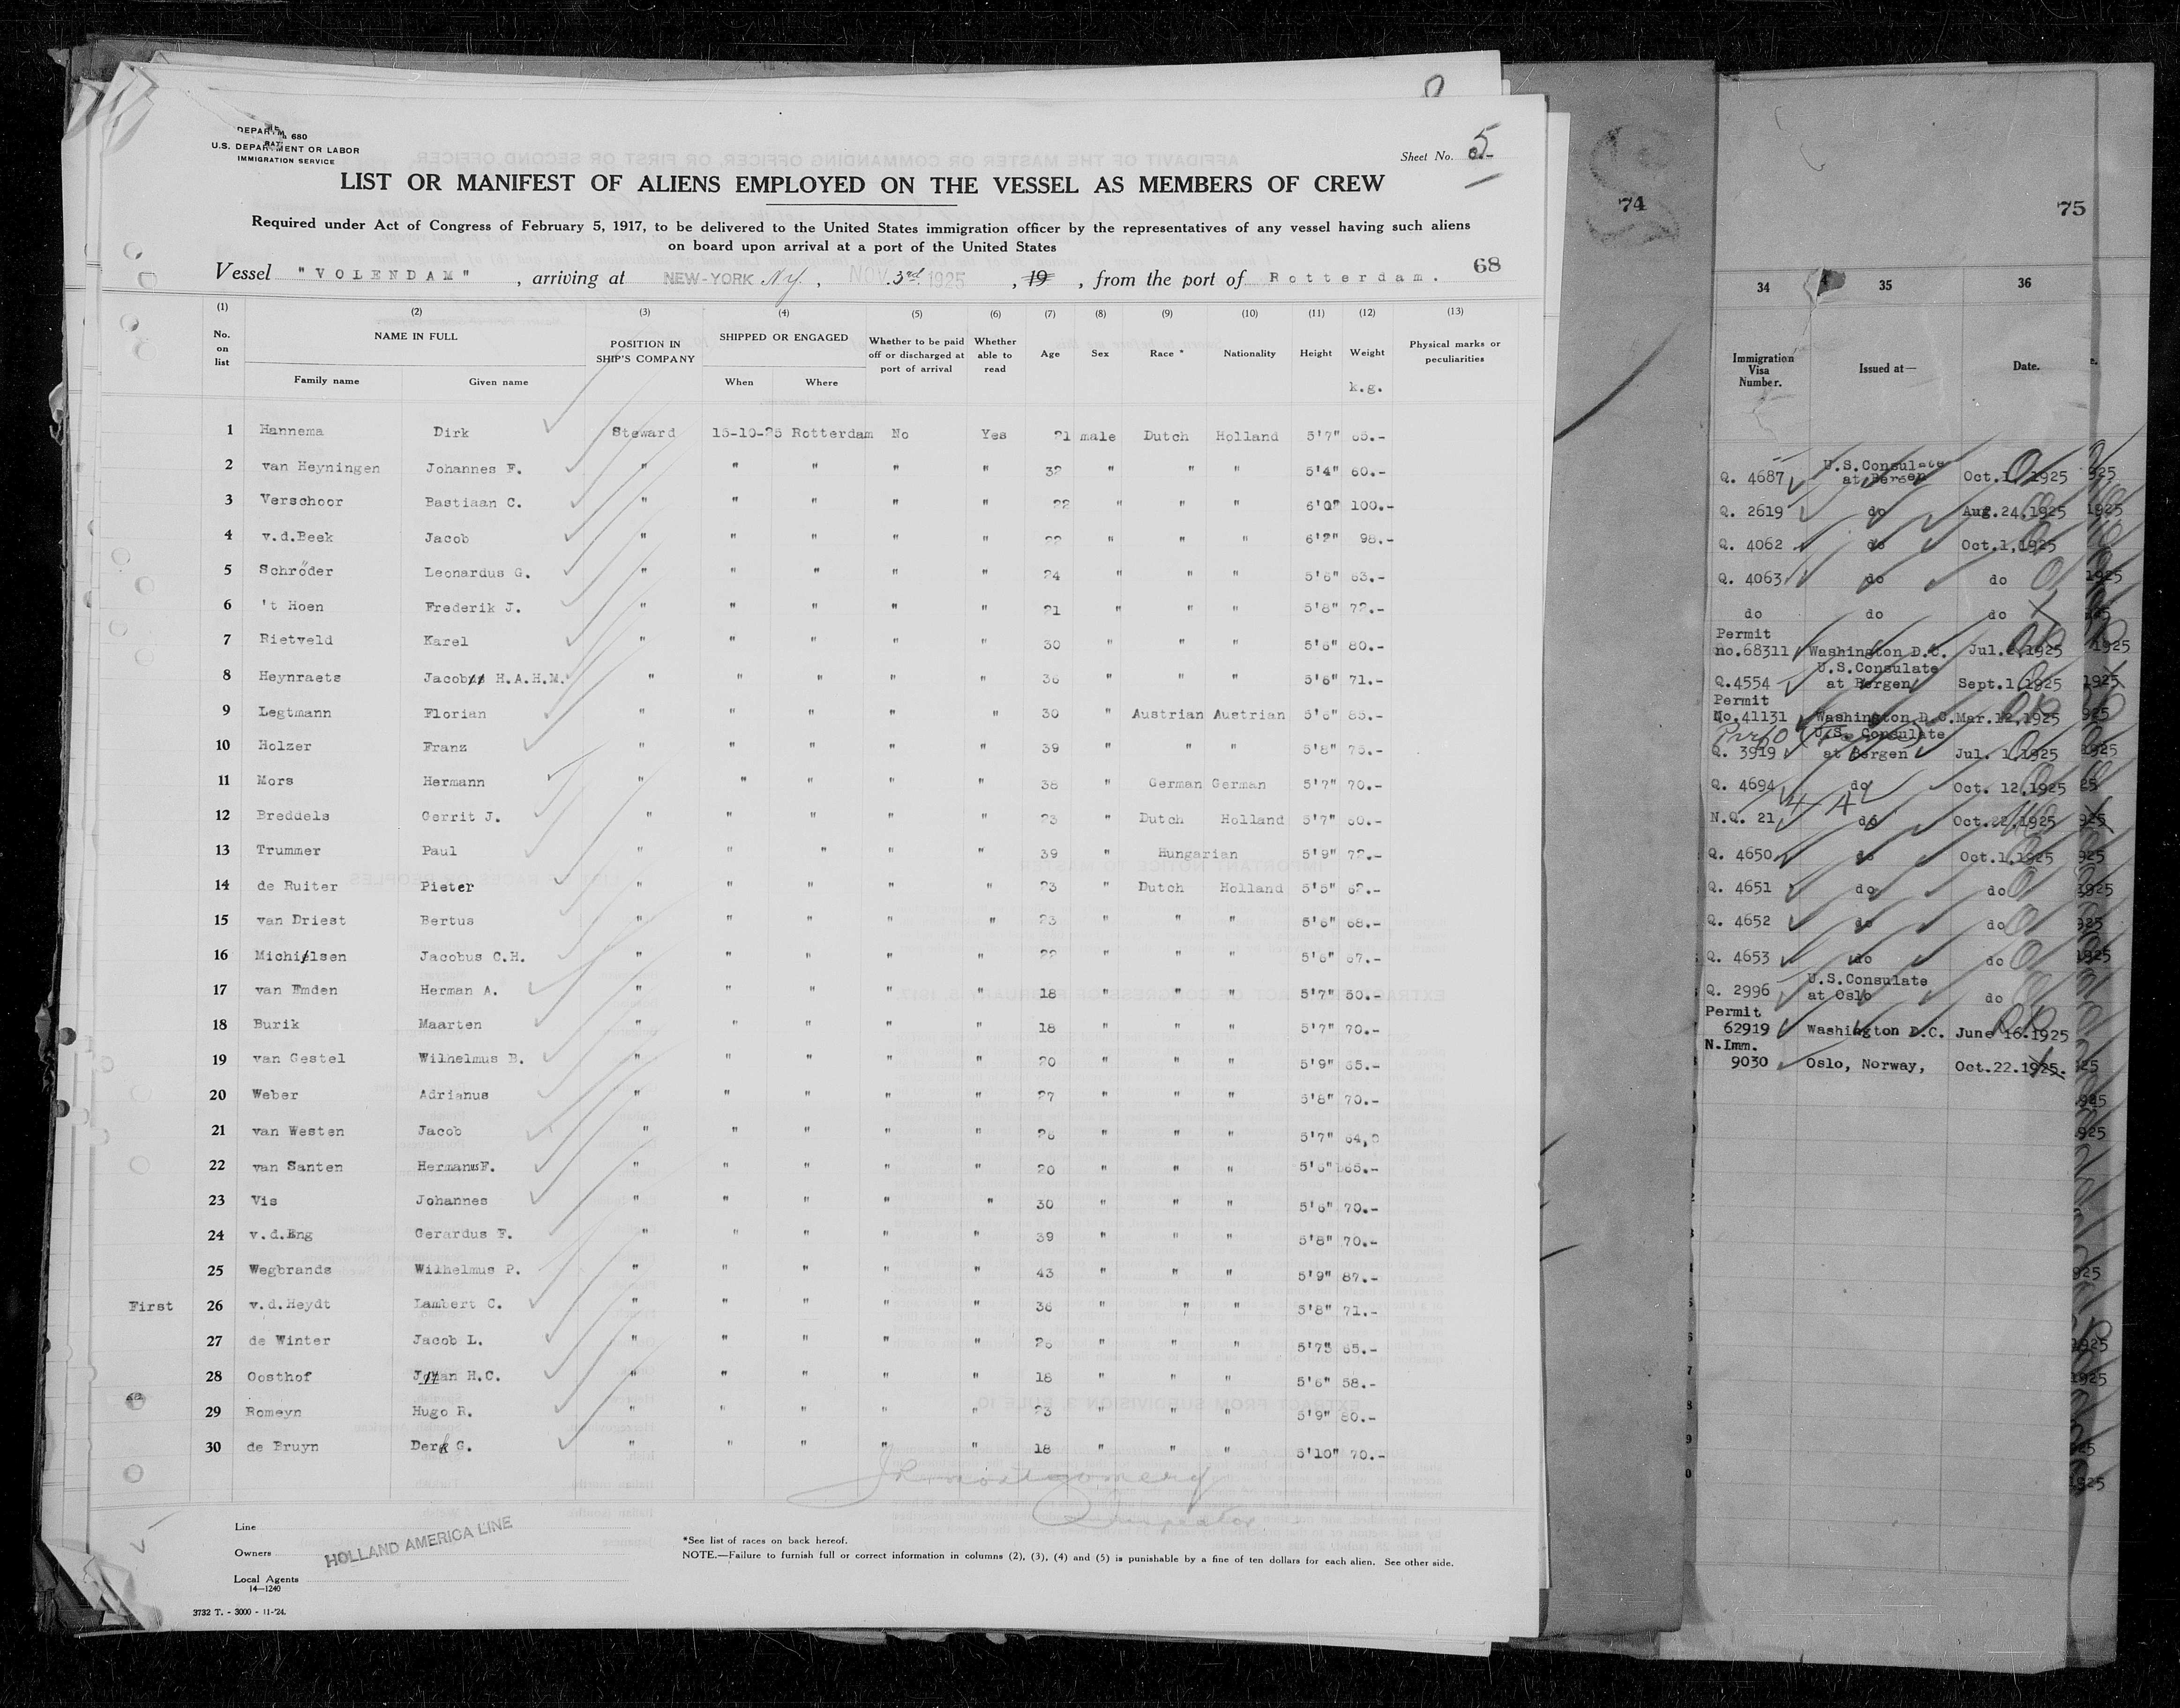 DEPART 680
U.S. DEPARTMENT OR LABOR
IMMIGRATION SERVICE
Sheet No. 5
LIST OR MANIFEST OF ALIENS EMPLOYED ON THE VESSEL AS MEMBERS OF CREW
Required under Act of Congress of February 5, 1917, to be delivered to the United States immigration officer by the representatives of any vessel having such aliens
on board upon arrival at a port of the United States
68
Vessel "VOLENDAM" , arriving at NEW-YORK N.Y. , NOV. 3rd 1925 , 19 , from the port of Rotterdam.
(1) (2) (3) (4) (5) (6) (7) (8) (9) (10) (11) (12) (13)
No. on list NAME IN FULL POSITION IN SHIP'S COMPANY SHIPPED OR ENGAGED Whether to be paid off or discharged at port of arrival Whether able to read Age Sex Race * Nationality Height Weight Physical marks or peculiarities
Family name Given name When Where k.g.
1 Hannema Dirk Steward 15-10-25 Rotterdam No Yes 21 male Dutch Holland 5'7" 65.-
2 van Heyningen Johannes F. " " " " " 32 " " " 5'4" 60.-
3 Verschoor Bastiaan C. " " " " " 22 " " " 6'0" 100.-
4 v.d.Beek Jacob " " " " " 22 " " " 6'2" 98.-
5 Schröder Leonardus G. " " " " " 24 " " " 5'6" 63.-
6 't Hoen Frederik J. " " " " " 21 " " " 5'8" 72.-
7 Rietveld Karel " " " " " 30 " " " 5'6" 80.-
8 Heynraets Jacob H.A.H.M. " " " " " 36 " " " 5'6" 71.-
9 Legtmann Florian " " " " " 30 " Austrian Austrian 5'6" 85.-
10 Holzer Franz " " " " " 39 " " " 5'8" 75.-
11 Mors Hermann " " " " " 38 " German German 5'7" 70.-
12 Breddels Gerrit J. " " " " " 23 " Dutch Holland 5'7" 60.-
13 Trummer Paul " " " " " 39 " Hungarian 5'9" 72.-
14 de Ruiter Pieter " " " " " 23 " Dutch Holland 5'5" 62.-
15 van Driest Bertus " " " " " 23 " " " 5'6" 68.-
16 Michielsen Jacobus C.H. " " " " " 22 " " " 5'6" 67.-
17 van Emden Herman A. " " " " " 18 " " " 5'7" 50.-
18 Burik Maarten " " " " " 18 " " " 5'7" 70.-
19 van Gestel Wilhelmus B. " " " " " 20 " " " 5'9" 65.-
20 Weber Adrianus " " " " " 27 " " " 5'8" 70.-
21 van Westen Jacob " " " " " 26 " " " 5'7" 64,0
22 van Santen Hermanus F. " " " " " 20 " " " 5'6" 65.-
23 Vis Johannes " " " " " 30 " " " 5'6" 70.-
24 v.d.Eng Gerardus F. " " " " " 39 " " " 5'8" 70.-
25 Wegbrands Wilhelmus P. " " " " " 43 " " " 5'9" 87.-
First 26 v.d.Heydt Lambert C. " " " " " 36 " " " 5'8" 71.-
27 de Winter Jacob L. " " " " " 26 " " " 5'75 65.-
28 Oosthof Johan H.C. " " " " " 18 " " " 5'6" 58.-
29 Romeyn Hugo R. " " " " " 23 " " " 5'9" 80.-
30 de Bruyn Derk G. " " " " " 18 " " " 5'10" 70.-
J R Montgomery
Inspector
Line
Owners HOLLAND AMERICA LINE
Local Agents
14—1240
*See list of races on back hereof.
NOTE.—Failure to furnish full or correct information in columns (2), (3), (4) and (5) is punishable by a fine of ten dollars for each alien. See other side.
3732 T. - 3000 - 11-'24.
74
75
34 35 36
Immigration Visa Number. Issued at— Date.
Q. 4687 U.S.Consulate at Bergen Oct.1,1925
Q. 2619 do Aug.24,1925
Q. 4062 do Oct.1,1925
Q. 4063 do do
do do do
Permit no.68311 Washington D.C. Jul. 1925
Q.4554 U.S.Consulate at Bergen Sept.1,1925
Permit No.41131 Washington D.C. Mar.12,1925
Q. 3919 U.S. Consulate at Bergen Jul. 1,1925
Q. 4694 do Oct. 12,1925
N.Q. 21 do Oct.22,1925
Q. 4650 do Oct.1,1925
Q. 4651 do do
Q. 4652 do do
Q. 4653 do do
Q. 2996 U.S.Consulate at Oslo do
Permit 62919 Washington D.C. June 16.1925
N.Imm. 9030 Oslo, Norway, Oct.22.1925.